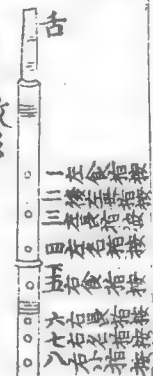 舌
一左食指按
二後左母指按
三左長指按
四左名指按
五右食指按
六右長指按
七右名指按
八右小指按